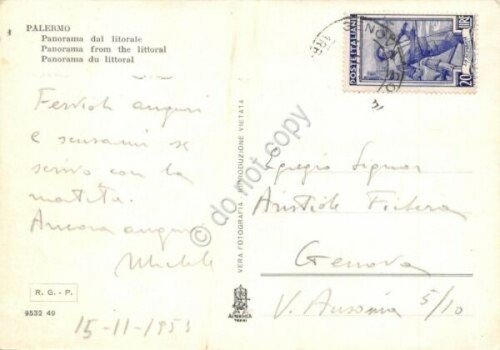 PALERMO
Panorama dal litorale
Panorama from the littoral
Panorama du littoral
Fervidi auguri
e scusami se
scrivo con la
matita.
Ancora auguri
Michele
R. G. - P.
9532 49
15-11-1953
VERA FOTOGRAFIA - RIPRODUZIONE VIETATA
TERNI
POSTE ITALIANE
20
LIRE
Egregio Signor
Aristide
Genova
V. Ausonia 5/10
do not copy